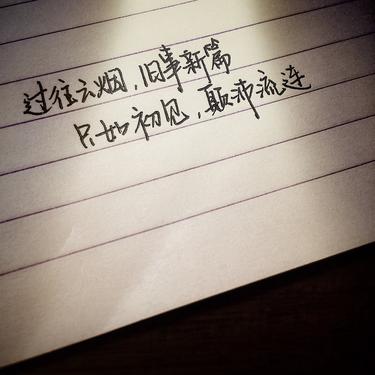 过往云烟，旧事新篇
只如初见，颠沛流连